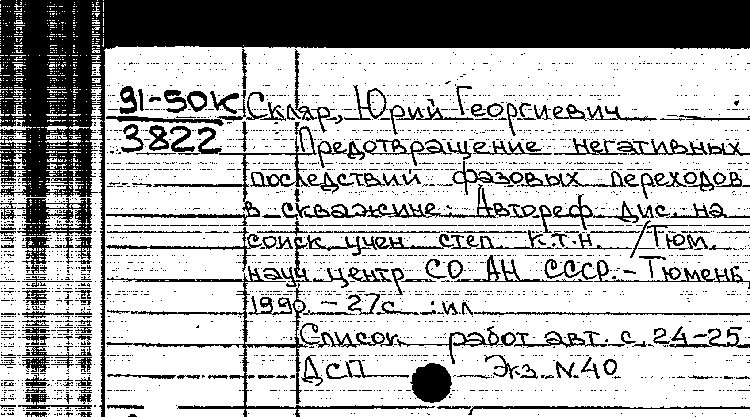 91-50К Скляр, Юрий Георгиевич
3822 Предотвращение негативных
последствий фазовых переходов
в скважине: Автореф. дис. на
соиск. учен. степ. к.т.н. /Тюм.
науч. центр СО АН СССР.-Тюмень,
1990. - 27с. : ил
Список работ авт. с. 24-25
ДСП Экз. N40